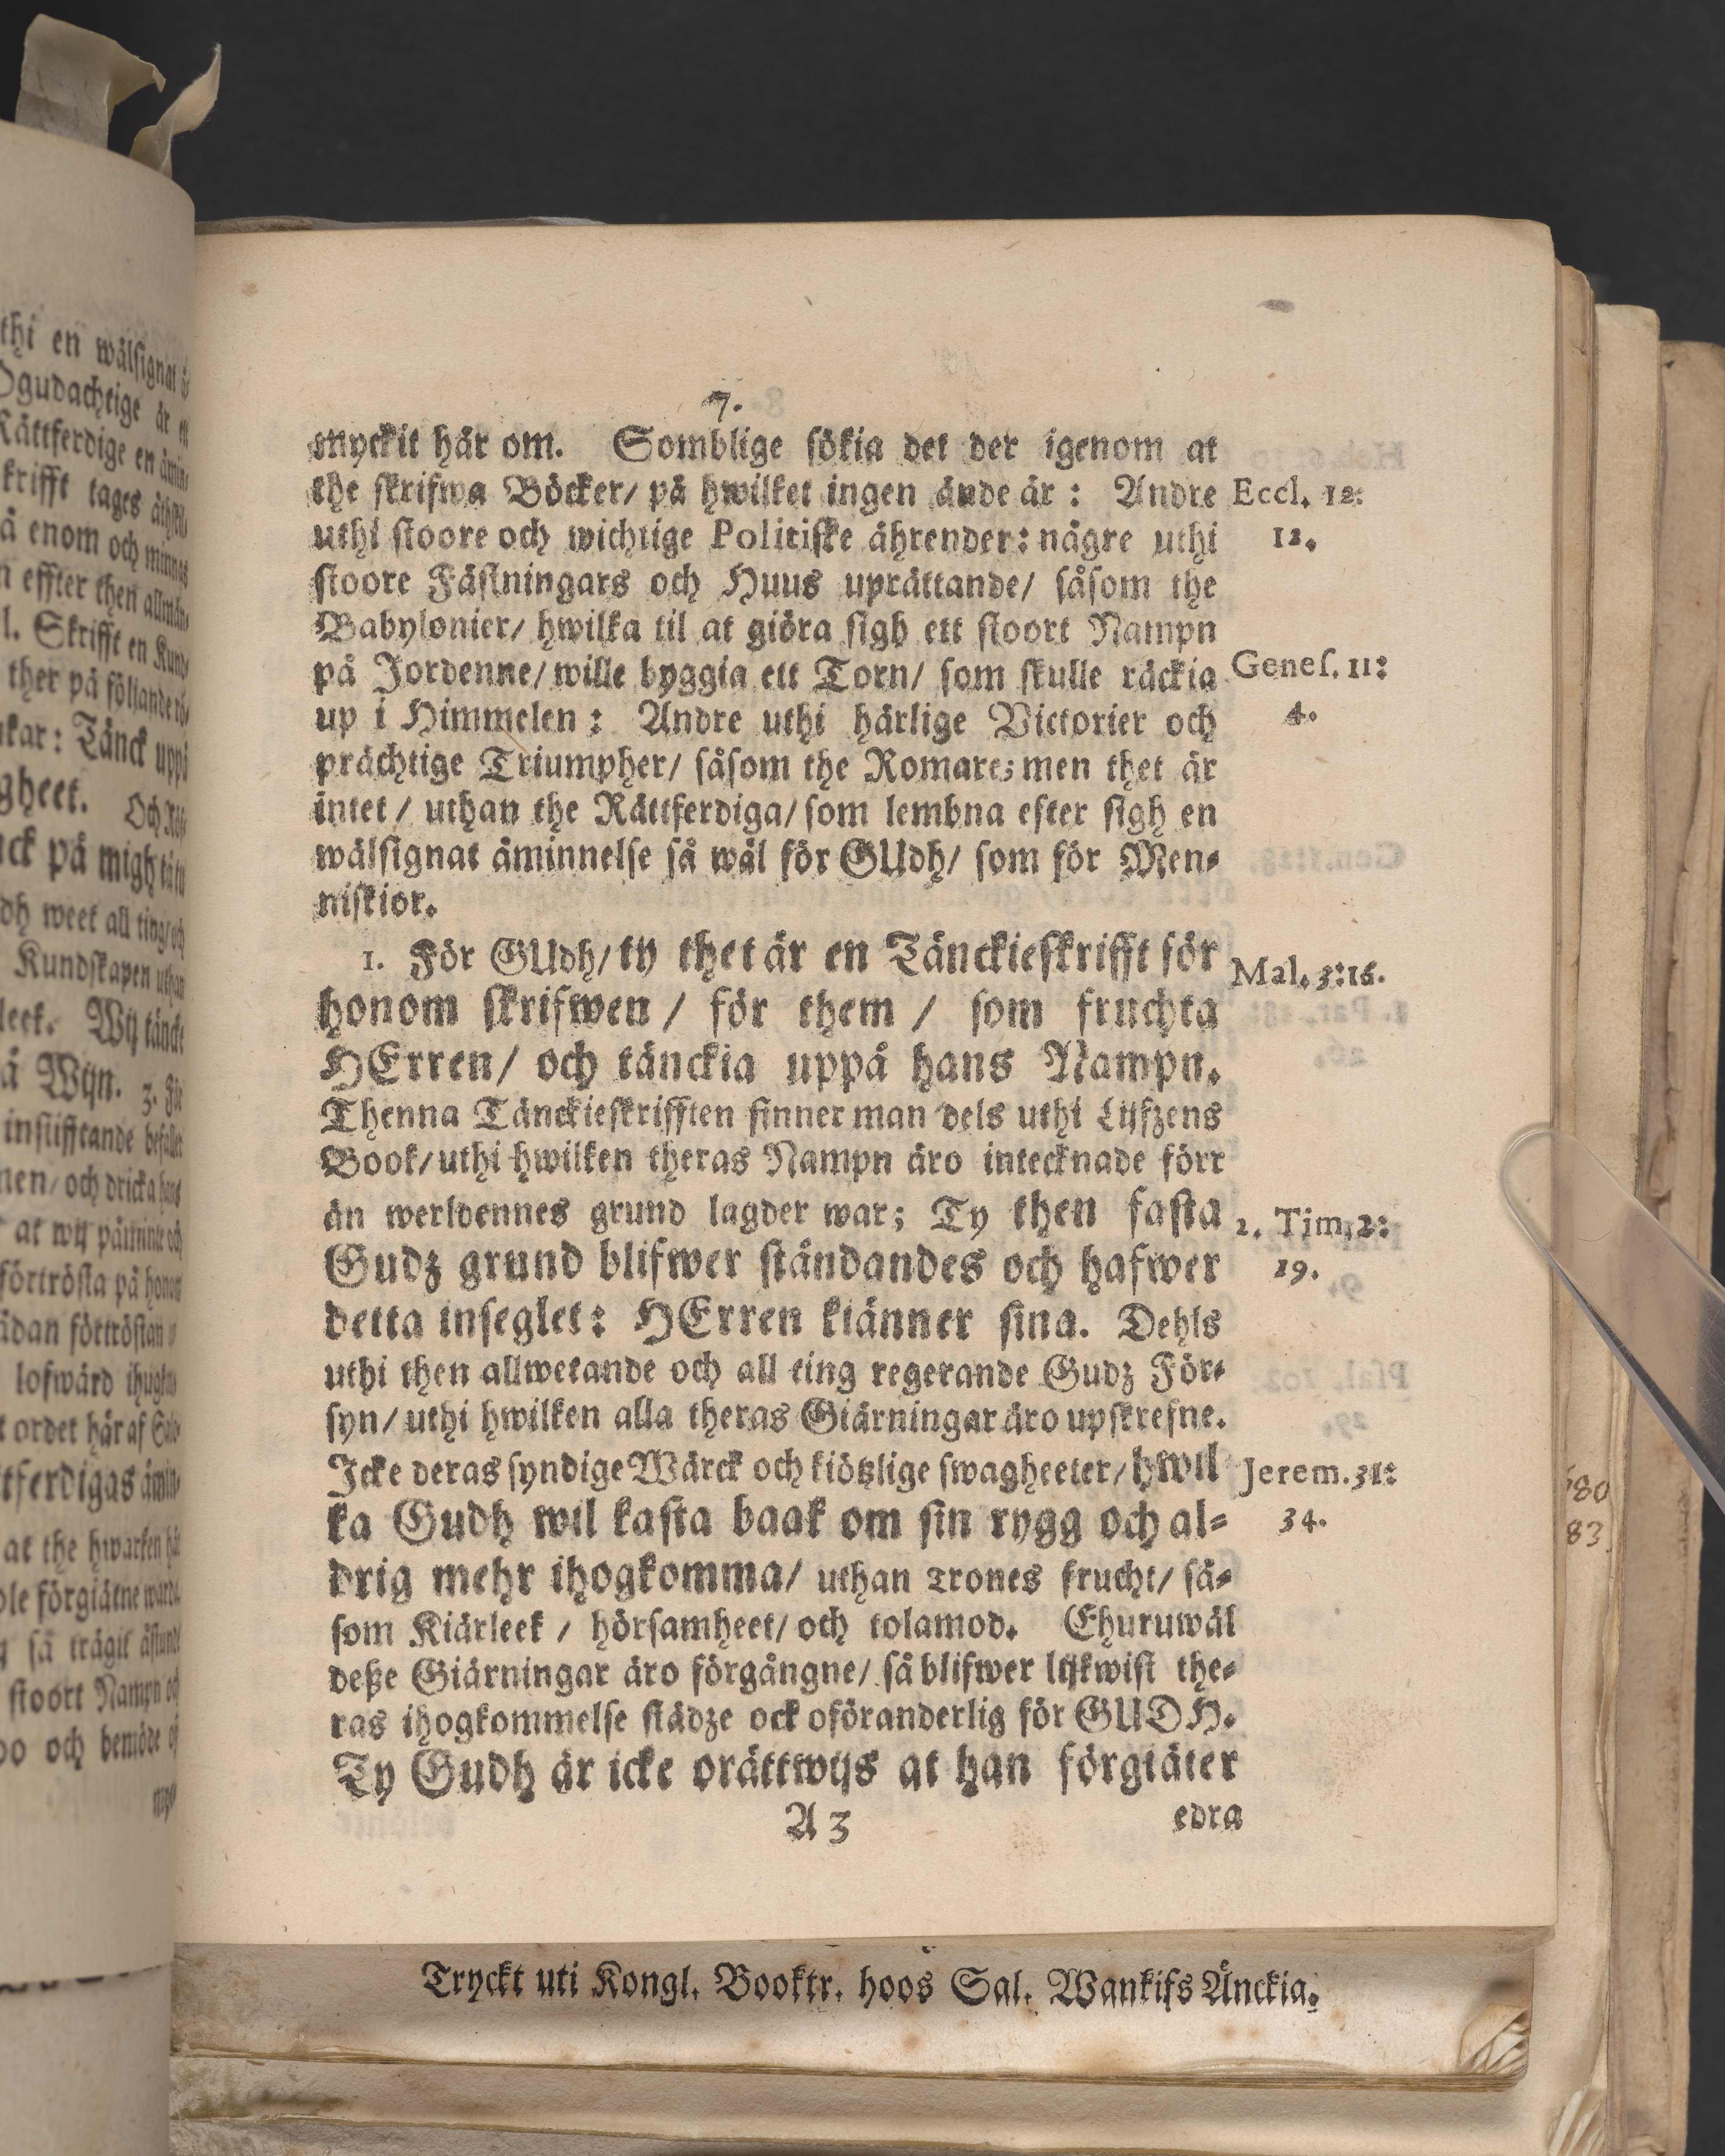 thi en wälsignat
Ogudachtige är
Rättferdige en
krifft tages
å enom och minnas
n effter then
l. Skrifft en
ther på följande
kar: Tänck uppå
gheet. Och
ck på migh
dh weet all ting/
Kundskapen uthan
leek. Wij tänck
å Wijn. 3. För
instifftande
men/ och dricka hans
at wij
förtrösta på
ådan förtröstan
lofwärd
t ordet här af
tferdigas
at the hwarken
ole förgiätne
g så trägit
stoort Nampn
oo och bemöde
7.
myckit här om. Somblige sökia det der igenom at
the skrifwa Böcker/ på hwilket ingen ände är : Andre
Eccl. 12:
uthi stoore och wichtige Politiske ährender: någre uthi
12.
stoore Fästningars och Huus uprättande/ såsom the
Babylonier/ hwilka til at giöra sigh ett stoort Nampn
på Jordenne/ wille byggia ett Torn/ som skulle räckia
Genes. 11:
up i Himmelen : Andre uthi härlige Victorier och
4.
prächtige Triumpher/ såsom the Romare; men thet är
intet / uthan the Rättferdiga/ som lembna efter sigh en
wälsignat åminnelse så wäl för GUdh/ som för Men-
niskior.
1. För GUdh/ ty thet är en Tänckieskrifft för
Mal. 3:16.
honom skrifwen / för them / som fruchta
HErren/ och tänckia uppå hans Nampn.
Thenna Tänckieskrifften finner man dels uthi Lijfzens
Book/ uthi hwilken theras Nampn äro intecknade förr
än werldennes grund lagder war; Ty then fasta
2. Tim. 2:
Gudz grund blifwer ståndandes och hafwer
19.
detta inseglet: HErren kiänner sina. Dehls
uthi then allwetande och all ting regerande Gudz För-
syn/ uthi hwilken alla theras Giärningar äro upskrefne.
Icke deras syndige Wärck och kiötzlige swagheeter/ hwil
Jerem. 31:
ka Gudh wil kasta baak om sin rygg och al-
34.
drig mehr ihogkomma/ uthan Trones frucht/ så-
som Kiärleek / hörsamheet/ och tolamod. Ehuruwäl
deße Giärningar äro förgångne/ så blifwer lijkwist the-
ras ihogkommelse städze ock oföranderlig för GUDH.
Ty Gudh är icke orättwijs at han förgiäter
A 3
edra
Tryckt uti Kongl. Booktr. hoos Sal. Wankifs Änckia.
80
83